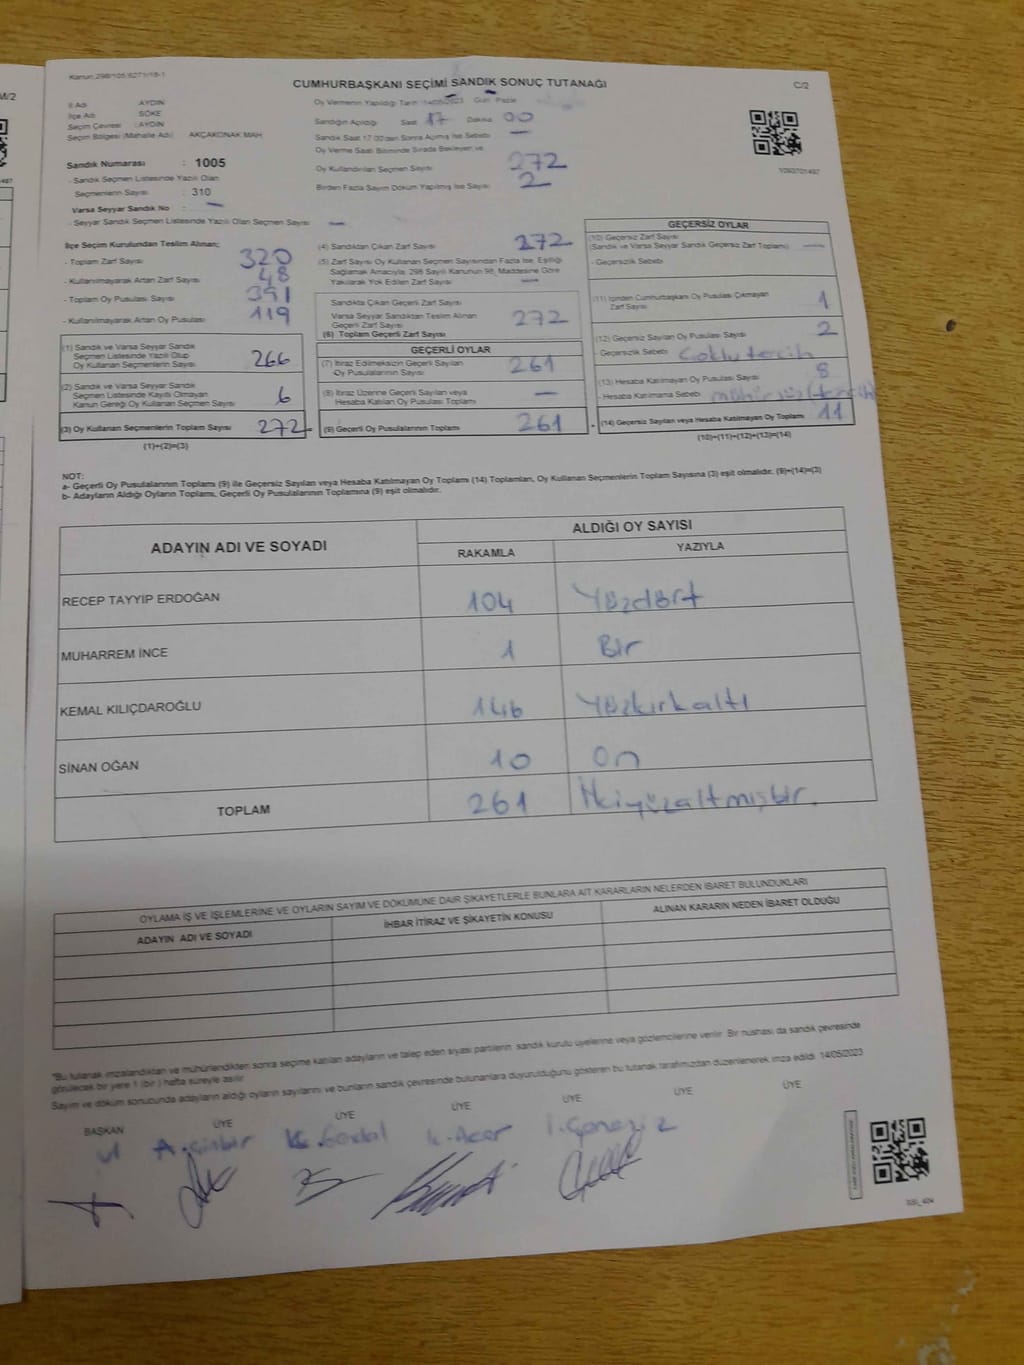 Kanun:298/105,6271/18-1
CUMHURBAŞKANI SEÇİMİ SANDIK SONUÇ TUTANAĞI
C/2
M/2
İl Adı : AYDIN
İlçe Adı : SÖKE
Seçim Çevresi : AYDIN
Seçim Bölgesi (Mahalle Adı) : AKÇAKONAK MAH.
Oy Vermenin Yapıldığı Tarih :14/05/2023 Gün : Pazar
Sandığın Açıldığı Saat 17 Dakika 00
Sandık Saat 17.00'den Sonra Açılmış İse Sebebi —
Oy Verme Saati Bitiminde Sırada Bekleyen ve
Oy Kullandırılan Seçmen Sayısı 272
Birden Fazla Sayım Döküm Yapılmış İse Sayısı 2
Sandık Numarası : 1005
- Sandık Seçmen Listesinde Yazılı Olan
Seçmenlerin Sayısı : 310
Varsa Seyyar Sandık No : —
- Seyyar Sandık Seçmen Listesinde Yazılı Olan Seçmen Sayısı —
İlçe Seçim Kurulundan Teslim Alınan;
- Toplam Zarf Sayısı 320
- Kullanılmayarak Artan Zarf Sayısı 48
- Toplam Oy Pusulası Sayısı 391
- Kullanılmayarak Artan Oy Pusulası 119
(1) Sandık ve Varsa Seyyar Sandık
Seçmen Listesinde Yazılı Olup
Oy Kullanan Seçmenlerin Sayısı 266
(2) Sandık ve Varsa Seyyar Sandık
Seçmen Listesinde Kaydı Olmayan
Kanun Gereği Oy Kullanan Seçmen Sayısı 6
(3) Oy Kullanan Seçmenlerin Toplam Sayısı 272
(1)+(2)=(3)
(4) Sandıktan Çıkan Zarf Sayısı 272
(5) Zarf Sayısı Oy Kullanan Seçmen Sayısından Fazla İse, Eşitliği
Sağlamak Amacıyla, 298 Sayılı Kanunun 98. Maddesine Göre
Yakılarak Yok Edilen Zarf Sayısı —
Sandıkta Çıkan Geçerli Zarf Sayısı
Varsa Seyyar Sandıktan Teslim Alınan
Geçerli Zarf Sayısı 272
(6) Toplam Geçerli Zarf Sayısı
GEÇERLİ OYLAR
(7) İtiraz Edilmeksizin Geçerli Sayılan
Oy Pusulalarının Sayısı 261
(8) İtiraz Üzerine Geçerli Sayılan veya
Hesaba Katılan Oy Pusulası Toplamı —
(9) Geçerli Oy Pusulalarının Toplamı 261
GEÇERSİZ OYLAR
(10) Geçersiz Zarf Sayısı
(Sandık ve Varsa Seyyar Sandık Geçersiz Zarf Toplamı) —
- Geçersizlik Sebebi
(11) İçinden Cumhurbaşkanı Oy Pusulası Çıkmayan
Zarf Sayısı 1
(12) Geçersiz Sayılan Oy Pusulası Sayısı 2
- Geçersizlik Sebebi Çoklu tercih
(13) Hesaba Katılmayan Oy Pusulası Sayısı 8
- Hesaba Katılmama Sebebi
(14) Geçersiz Sayılan veya Hesaba Katılmayan Oy Toplamı 11
(10)+(11)+(12)+(13)=(14)
NOT:
a- Geçerli Oy Pusulalarının Toplamı (9) ile Geçersiz Sayılan veya Hesaba Katılmayan Oy Toplamı (14) Toplamları, Oy Kullanan Seçmenlerin Toplam Sayısına (3) eşit olmalıdır. (9)+(14)=(3)
b- Adayların Aldığı Oyların Toplamı, Geçerli Oy Pusulalarının Toplamına (9) eşit olmalıdır.
ADAYIN ADI VE SOYADI
ALDIĞI OY SAYISI
RAKAMLA YAZIYLA
RECEP TAYYIP ERDOĞAN 104 Yüzdört
MUHARREM İNCE 1 Bir
KEMAL KILIÇDAROĞLU 146 Yüzkırkaltı
SİNAN OĞAN 10 On
TOPLAM 261 İkiyüzaltmışbir.
OYLAMA İŞ VE İŞLEMLERİNE VE OYLARIN SAYIM VE DÖKÜMÜNE DAİR ŞİKAYETLERLE BUNLARA AİT KARARLARIN NELERDEN İBARET BULUNDUKLARI
ADAYIN ADI VE SOYADI İHBAR İTİRAZ VE ŞİKAYETİN KONUSU ALINAN KARARIN NEDEN İBARET OLDUĞU
*Bu tutanak imzalandıktan ve mühürlendikten sonra seçime katılan adayların ve talep eden siyasi partilerin sandık kurulu üyelerine veya gözlemcilerine verilir. Bir nüshası da sandık çevresinde
görülecek bir yere 1 (bir ) hafta süreyle asılır.
Sayım ve döküm sonucunda adayların aldığı oyların sayılarını ve bunların sandık çevresinde bulunanlara duyurulduğunu gösteren bu tutanak tarafımızdan düzenlenerek imza edildi. 14/05/2023
BAŞKAN ÜYE ÜYE ÜYE ÜYE ÜYE ÜYE